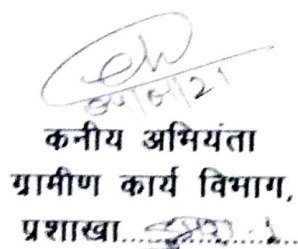 कनीय अभियंता
ग्रामीण कार्य विभाग,
प्रशाखा..................